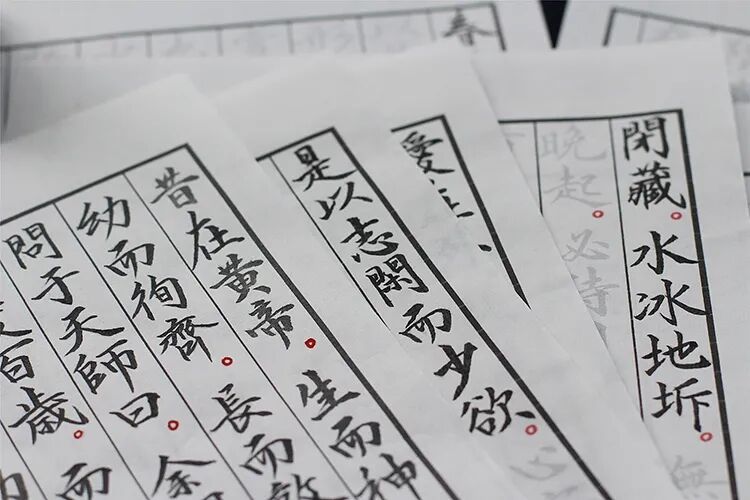 春
閉藏。水冰地坼。無
晚起。必待
愛
是以志閑而少欲。心
昔在黃帝。生而神
幼而徇齊。長而敦
問于天師曰。余
百歲。而